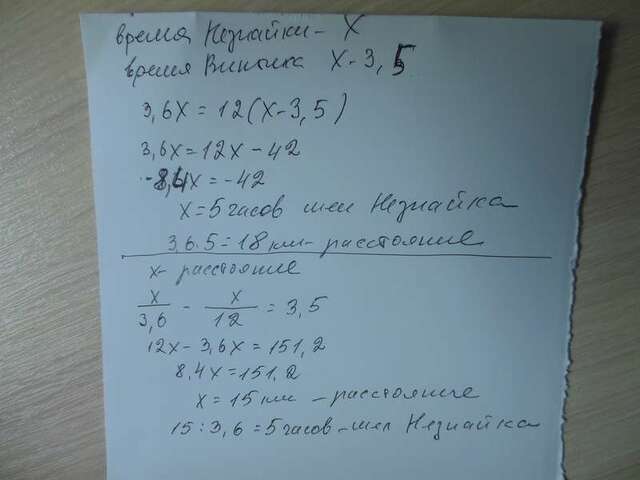 время Незнайки - X
время Винтика X - 3,5
3,6X = 12(X - 3,5)
3,6X = 12X - 42
-8,4X = -42
X = 5 часов шел Незнайка
3,6 · 5 = 18 км - расстояние
X - расстояние
X/3,6 - X/12 = 3,5
12X - 3,6X = 151,2
8,4X = 151,2
X = 15 км - расстояние
15 : 3,6 = 5 часов - шел Незнайка